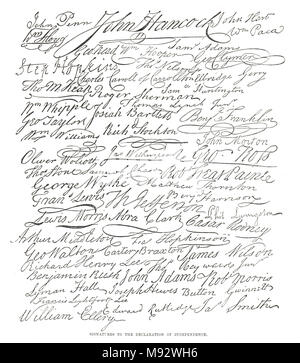 John Penn John Hancock John Hart
Wm Paca
Geo Read Wm Hooper Sam Adams
Step Hopkins Tho Nelson jr Geo Clymer
Charles Carroll of Carrollton Elbridge Gerry
Tho M:Kean Roger Sherman Sam Huntington
Wm Whipple Thomas Lynch Junr
Geo Taylor Josiah Bartlett Benj Franklin
Wm Williams Richd Stockton John Morton
Oliver Wolcott Jno Witherspoon Geo Ross
Robt Treat Paine
George Wythe Matthew Thornton
Frans Lewis Th Jefferson Benj Harrison
Lewis Morris Abra Clark Caesar Rodney
Phil Livingston
Arthur Middleton Fras Hopkinson
Geo Walton Carter Braxton James Wilson
Richard Henry Lee Tho Heyward Junr
Benjamin Rush John Adams Robt Morris
Lyman Hall Joseph Hewes Button Gwinnett
Francis Lightfoot Lee
William Ellery Edward Rutledge Jas Smith
SIGNATURES TO THE DECLARATION OF INDEPENDENCE.
alamy
Image ID: M92WH6
www.alamy.com